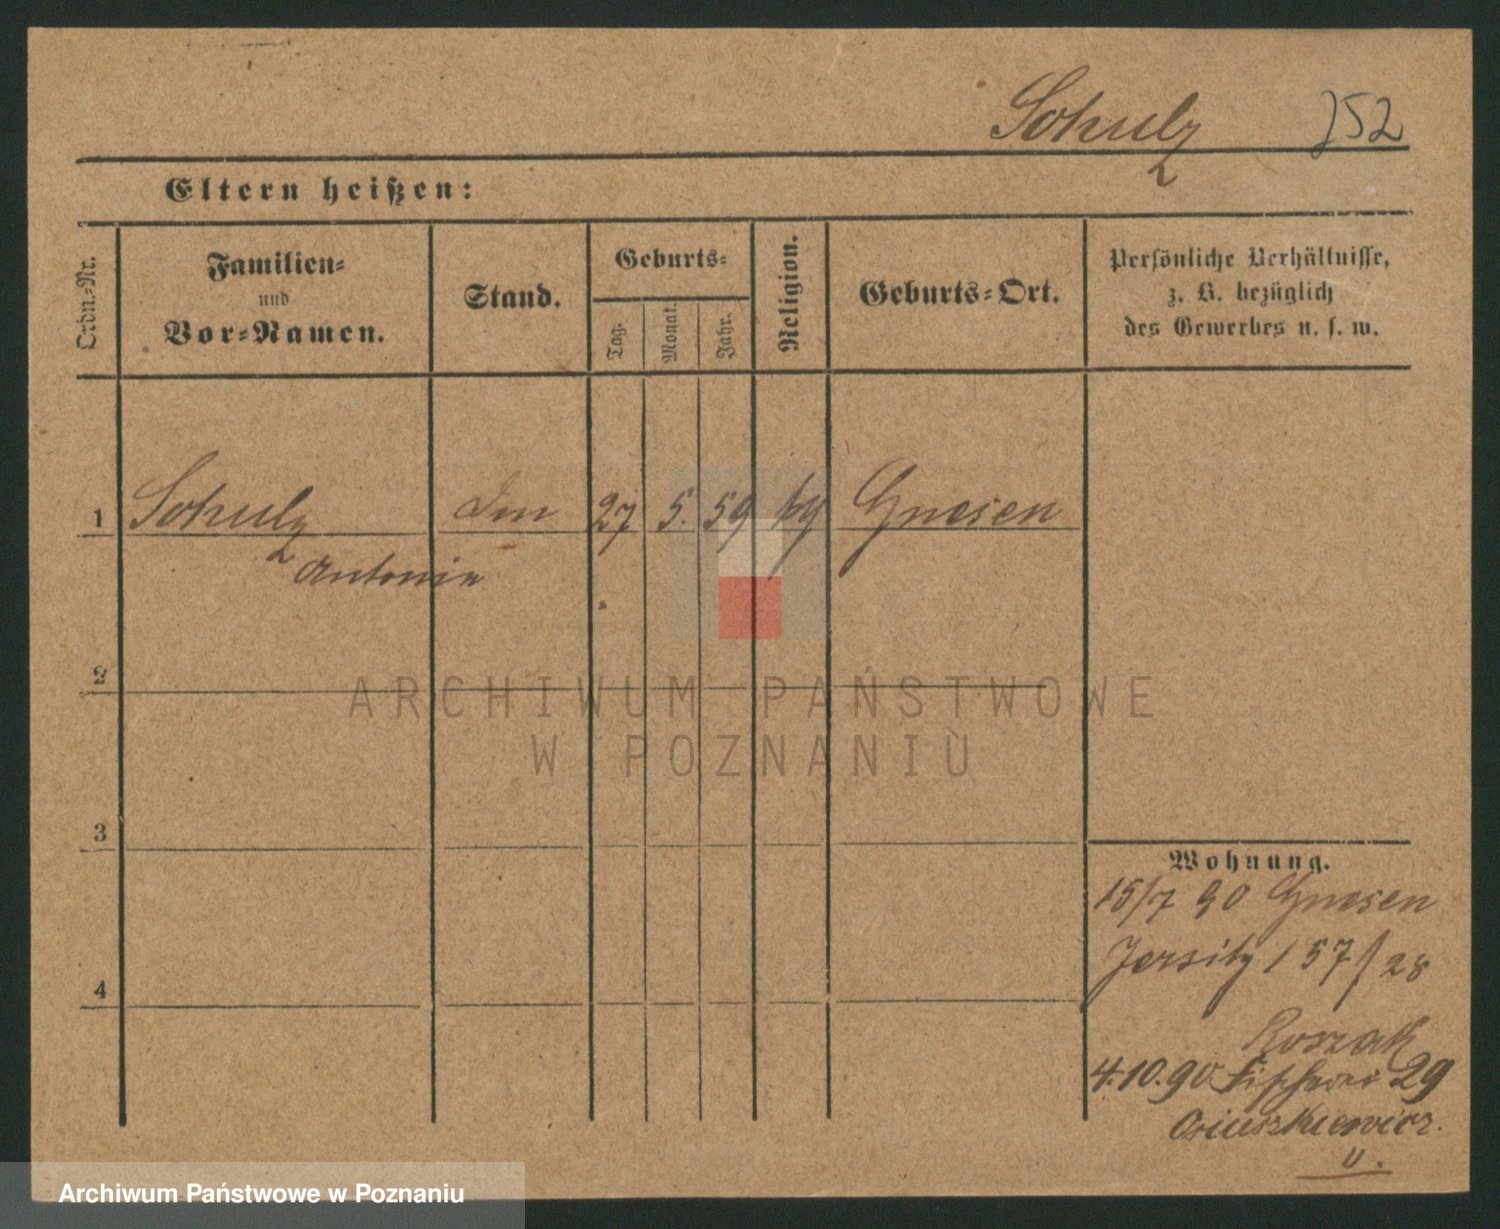 Schulz 252
Eltern heißen:
Ordn.-Nr.
Familien-
und
Vor-Namen.
Stand.
Geburts-
Tag.
Monat.
Jahr.
Religion.
Geburts-Ort.
Persönliche Verhältnisse,
z. B. bezüglich
des Gewerbes u. s. w.
1 Schulz 27 5. 59 Gnesen
Antonie
2
3
4
Wohnung.
15/7 90 Gnesen
Jersitz 157/28
Roszak
4.10.90 Fischerei 29
ARCHIWUM PAŃSTWOWE
W POZNANIU
Archiwum Państwowe w Poznaniu